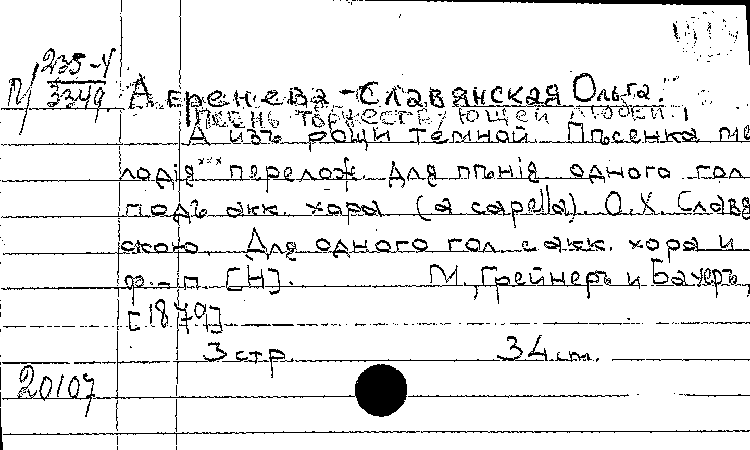 П/ 235-У
3349
Агренева-Славянская Ольга.
Песнь торжествующей любви.
А изъ рощи темной. Пѣсенка ме
лодія*** перелож. для пѣнія одного гол
подъ акк. хора (a capella). О.Х. Славя
скою. Для одного гол. с акк. хора и
ф.-п. [Н]. М., Грейнеръ и Бауеръ,
[1879]
3 стр. 34 cm.
20107